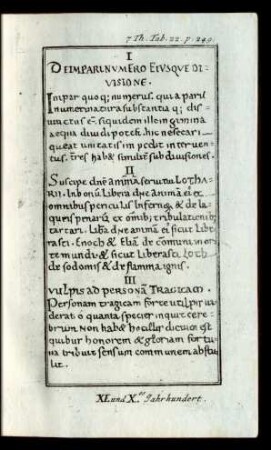 7 Th. Tab. 22. p. 249.
I
DE IMPARI NUMERO EIUSQUE DI
VISIONE.
Impar quoq; numerus. qui a paris
numeri natura substantia q; dis
iunctus est. siquidem ille in gemina
aequa dividi potest. hic ne secari
queat unitatis impedit interven
tus. tres habet similiter subdivisiones.
II
Suscipe dne animā servi tui LOTHA
RII. In bonū. Libera dne animā ei ex
omnibus periculis Infernorū & de la
queis penarū. ex omnib; tribulationib;
tartari. Libera dne animā ei sicut Libe
rasti. Enoch & Eliā. de communi mor
te mundi. & sicut Liberasti Loth
de sodomis & de flamma ignis.
III
VULPIS AD PERSONĀ TRAGICAM.
Personam tragicam forte vulpis vi
derat o quanta species inquit cere
brum Non habet hoc illis dictum est
quibus honorem & gloriam fortu
na tribuit sensum communem abstu
lit.
XI. und X.tes Jahrhundert.